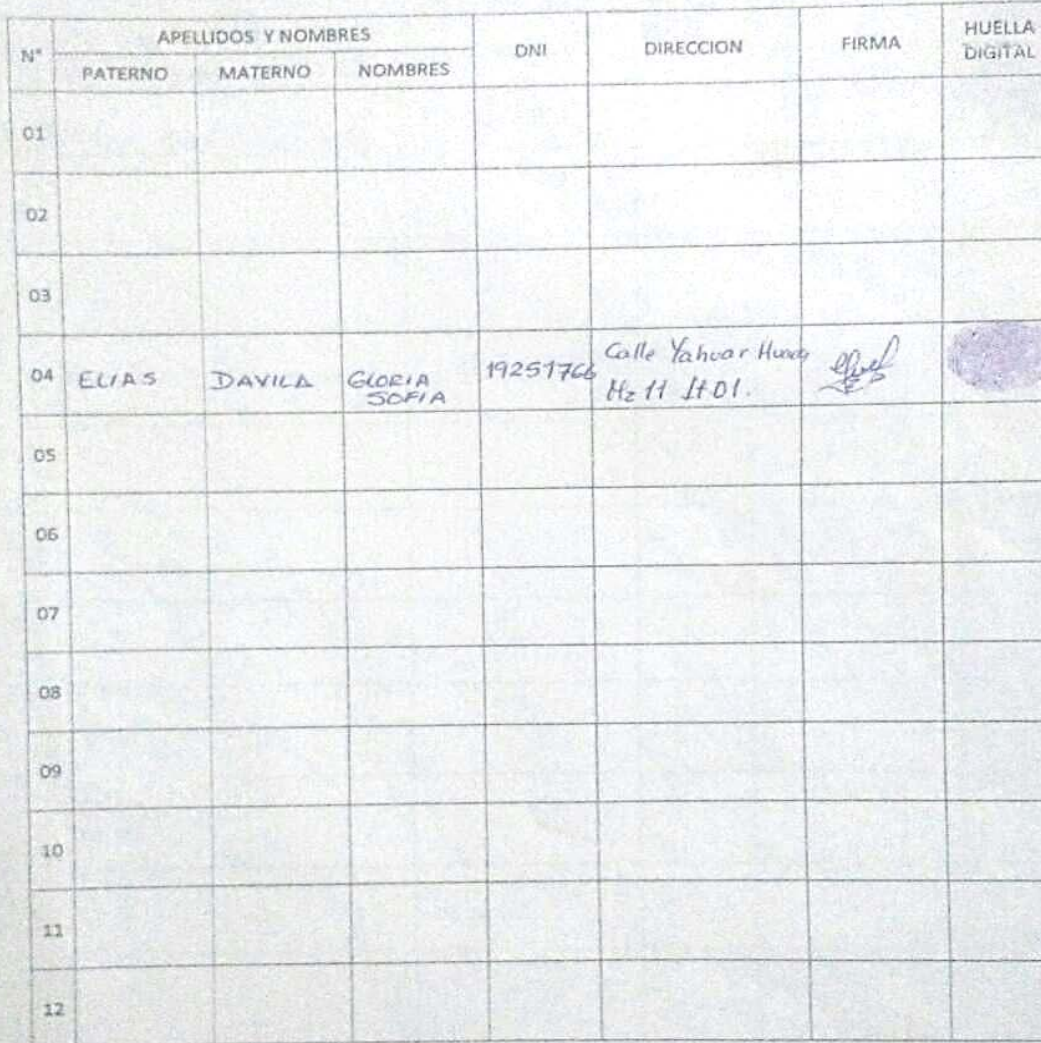 N° APELLIDOS Y NOMBRES DNI DIRECCION FIRMA HUELLA DIGITAL
PATERNO MATERNO NOMBRES
01
02
03
04 ELIAS DAVILA GLORIA SOFIA 19251766 Calle Yahuar
Mz 11 Lt 01.
05
06
07
08
09
10
11
12